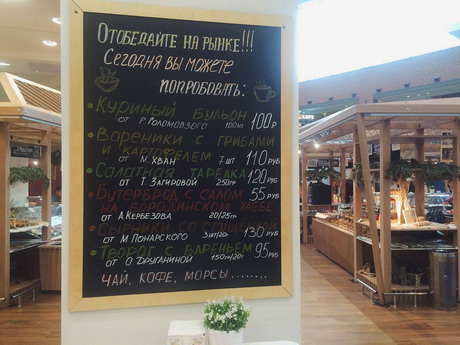 Отобедайте на рынке!!!
Сегодня вы можете
попробовать:
• Куриный бульон
от Р. 100мл 100р
• Вареники с грибами
и картофелем
от М. Хван 7 шт 110 руб
• Салатная тарелка
от Т. Загировой 250г 120 руб
• Бутерброд с салом
на бородинском хлебе 55 руб
от А. Кербезова 20/25г
• Сырники со сгущёнкой
от М. Понарского 3шт/20г 130 руб
• Творог с вареньем
от О. Друганиной 150г/20г 95 руб
Чай, кофе, морсы.......